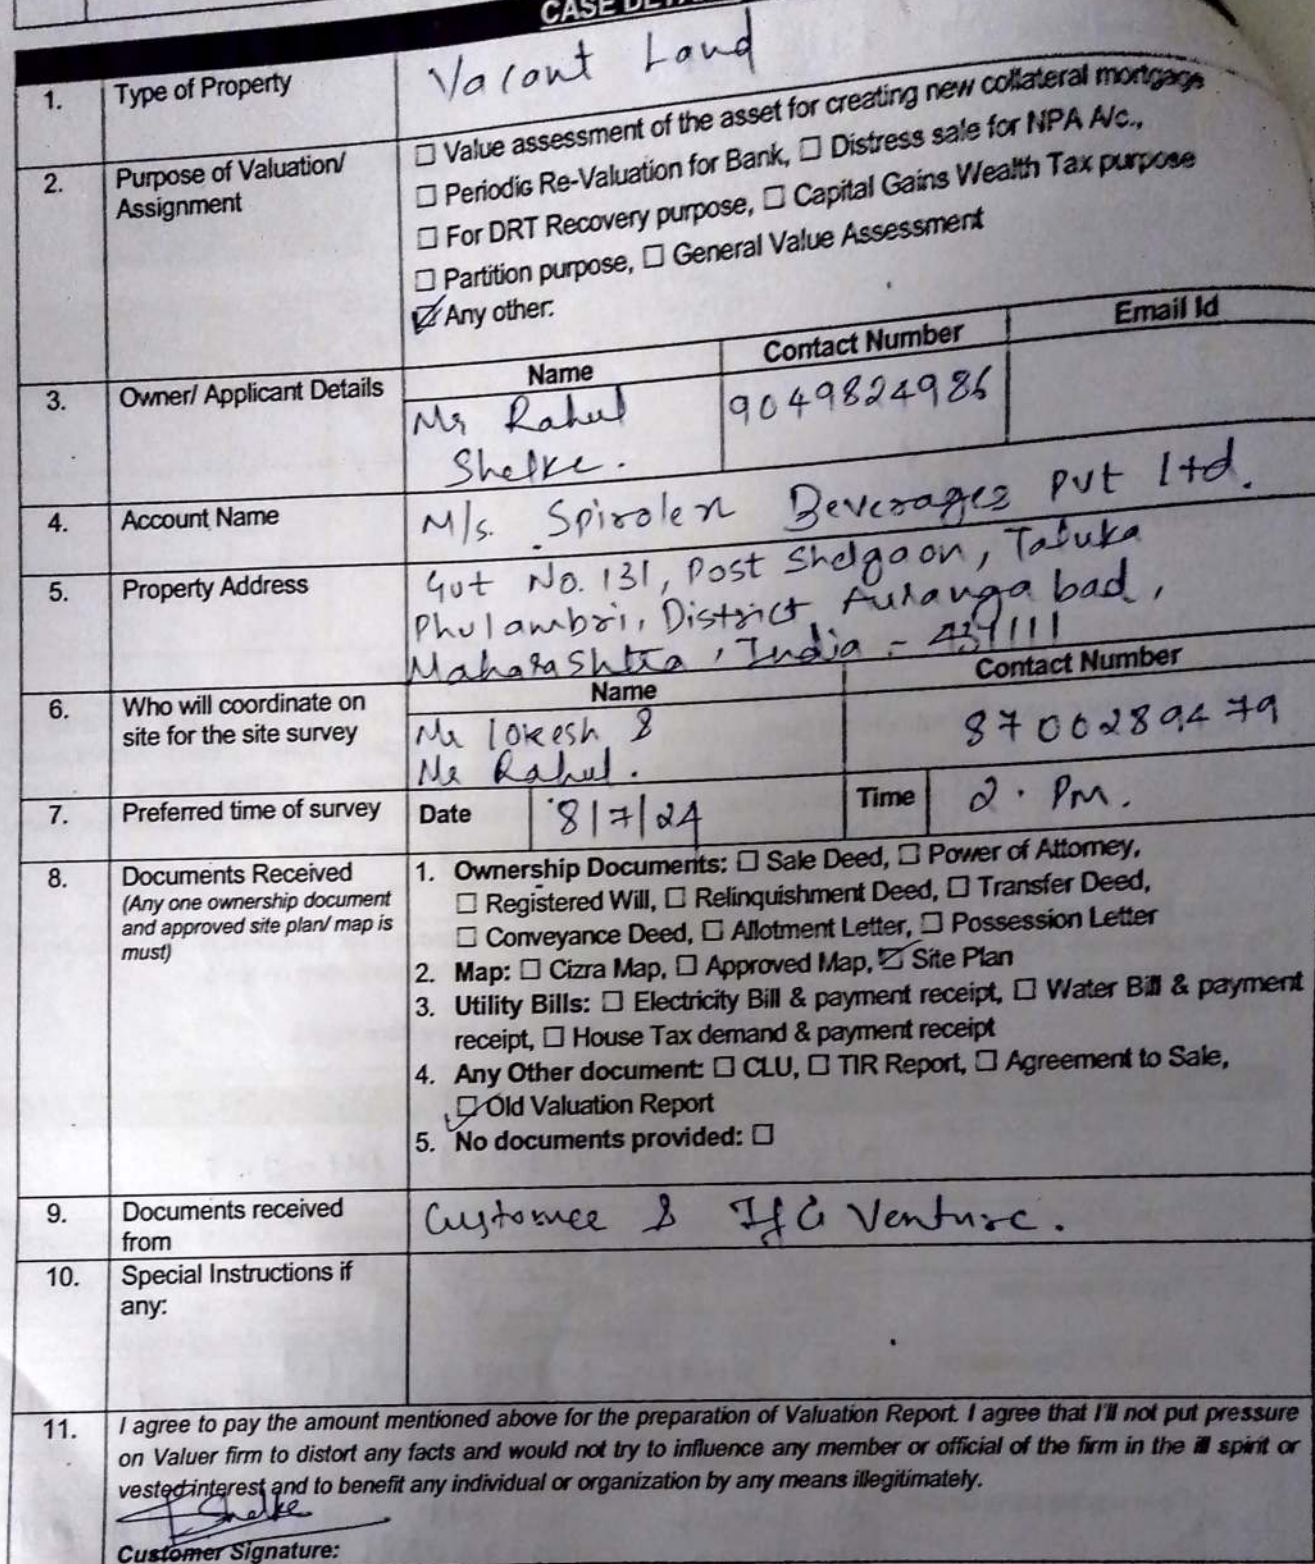 CASE DET
1. Type of Property Vacant Land
2. Purpose of Valuation/ Assignment
☐ Value assessment of the asset for creating new collateral mortgage
☐ Periodic Re-Valuation for Bank, ☐ Distress sale for NPA A/c.,
☐ For DRT Recovery purpose, ☐ Capital Gains Wealth Tax purpose
☐ Partition purpose, ☐ General Value Assessment
☑ Any other:
3. Owner/ Applicant Details
Name Contact Number Email Id
Mr Rahul 9049824986
Shelke.
4. Account Name M/s. Spirolen Beverages Pvt ltd.
5. Property Address
Gut No. 131, Post Shelgaon, Taluka
Phulambri, District Auranga bad,
Maharashtra, India - 431111
6. Who will coordinate on site for the site survey
Name Contact Number
Mr lokesh & 8700289479
Mr Rahul.
7. Preferred time of survey Date 8/7/24 Time 2. PM.
8. Documents Received
(Any one ownership document
and approved site plan/ map is
must)
1. Ownership Documents: ☐ Sale Deed, ☐ Power of Attorney,
☐ Registered Will, ☐ Relinquishment Deed, ☐ Transfer Deed,
☐ Conveyance Deed, ☐ Allotment Letter, ☐ Possession Letter
2. Map: ☐ Cizra Map, ☐ Approved Map, ☑ Site Plan
3. Utility Bills: ☐ Electricity Bill & payment receipt, ☐ Water Bill & payment
receipt, ☐ House Tax demand & payment receipt
4. Any Other document: ☐ CLU, ☐ TIR Report, ☐ Agreement to Sale,
☑ Old Valuation Report
5. No documents provided: ☐
9. Documents received from Customer & Venture.
10. Special Instructions if any:
11. I agree to pay the amount mentioned above for the preparation of Valuation Report. I agree that I'll not put pressure
on Valuer firm to distort any facts and would not try to influence any member or official of the firm in the ill spirit or
vested interest and to benefit any individual or organization by any means illegitimately.
Shelke
Customer Signature: